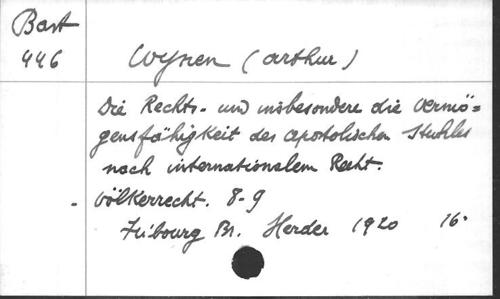 Bast
446
Wynen (Arthur)
Die Rechts- und insbesondere die Vermö=
gensfähigkeit des apostolischen Stuhles
nach internationalem Recht.
- Völkerrecht. 8-9
Fribourg Br. Herder 1920 16°